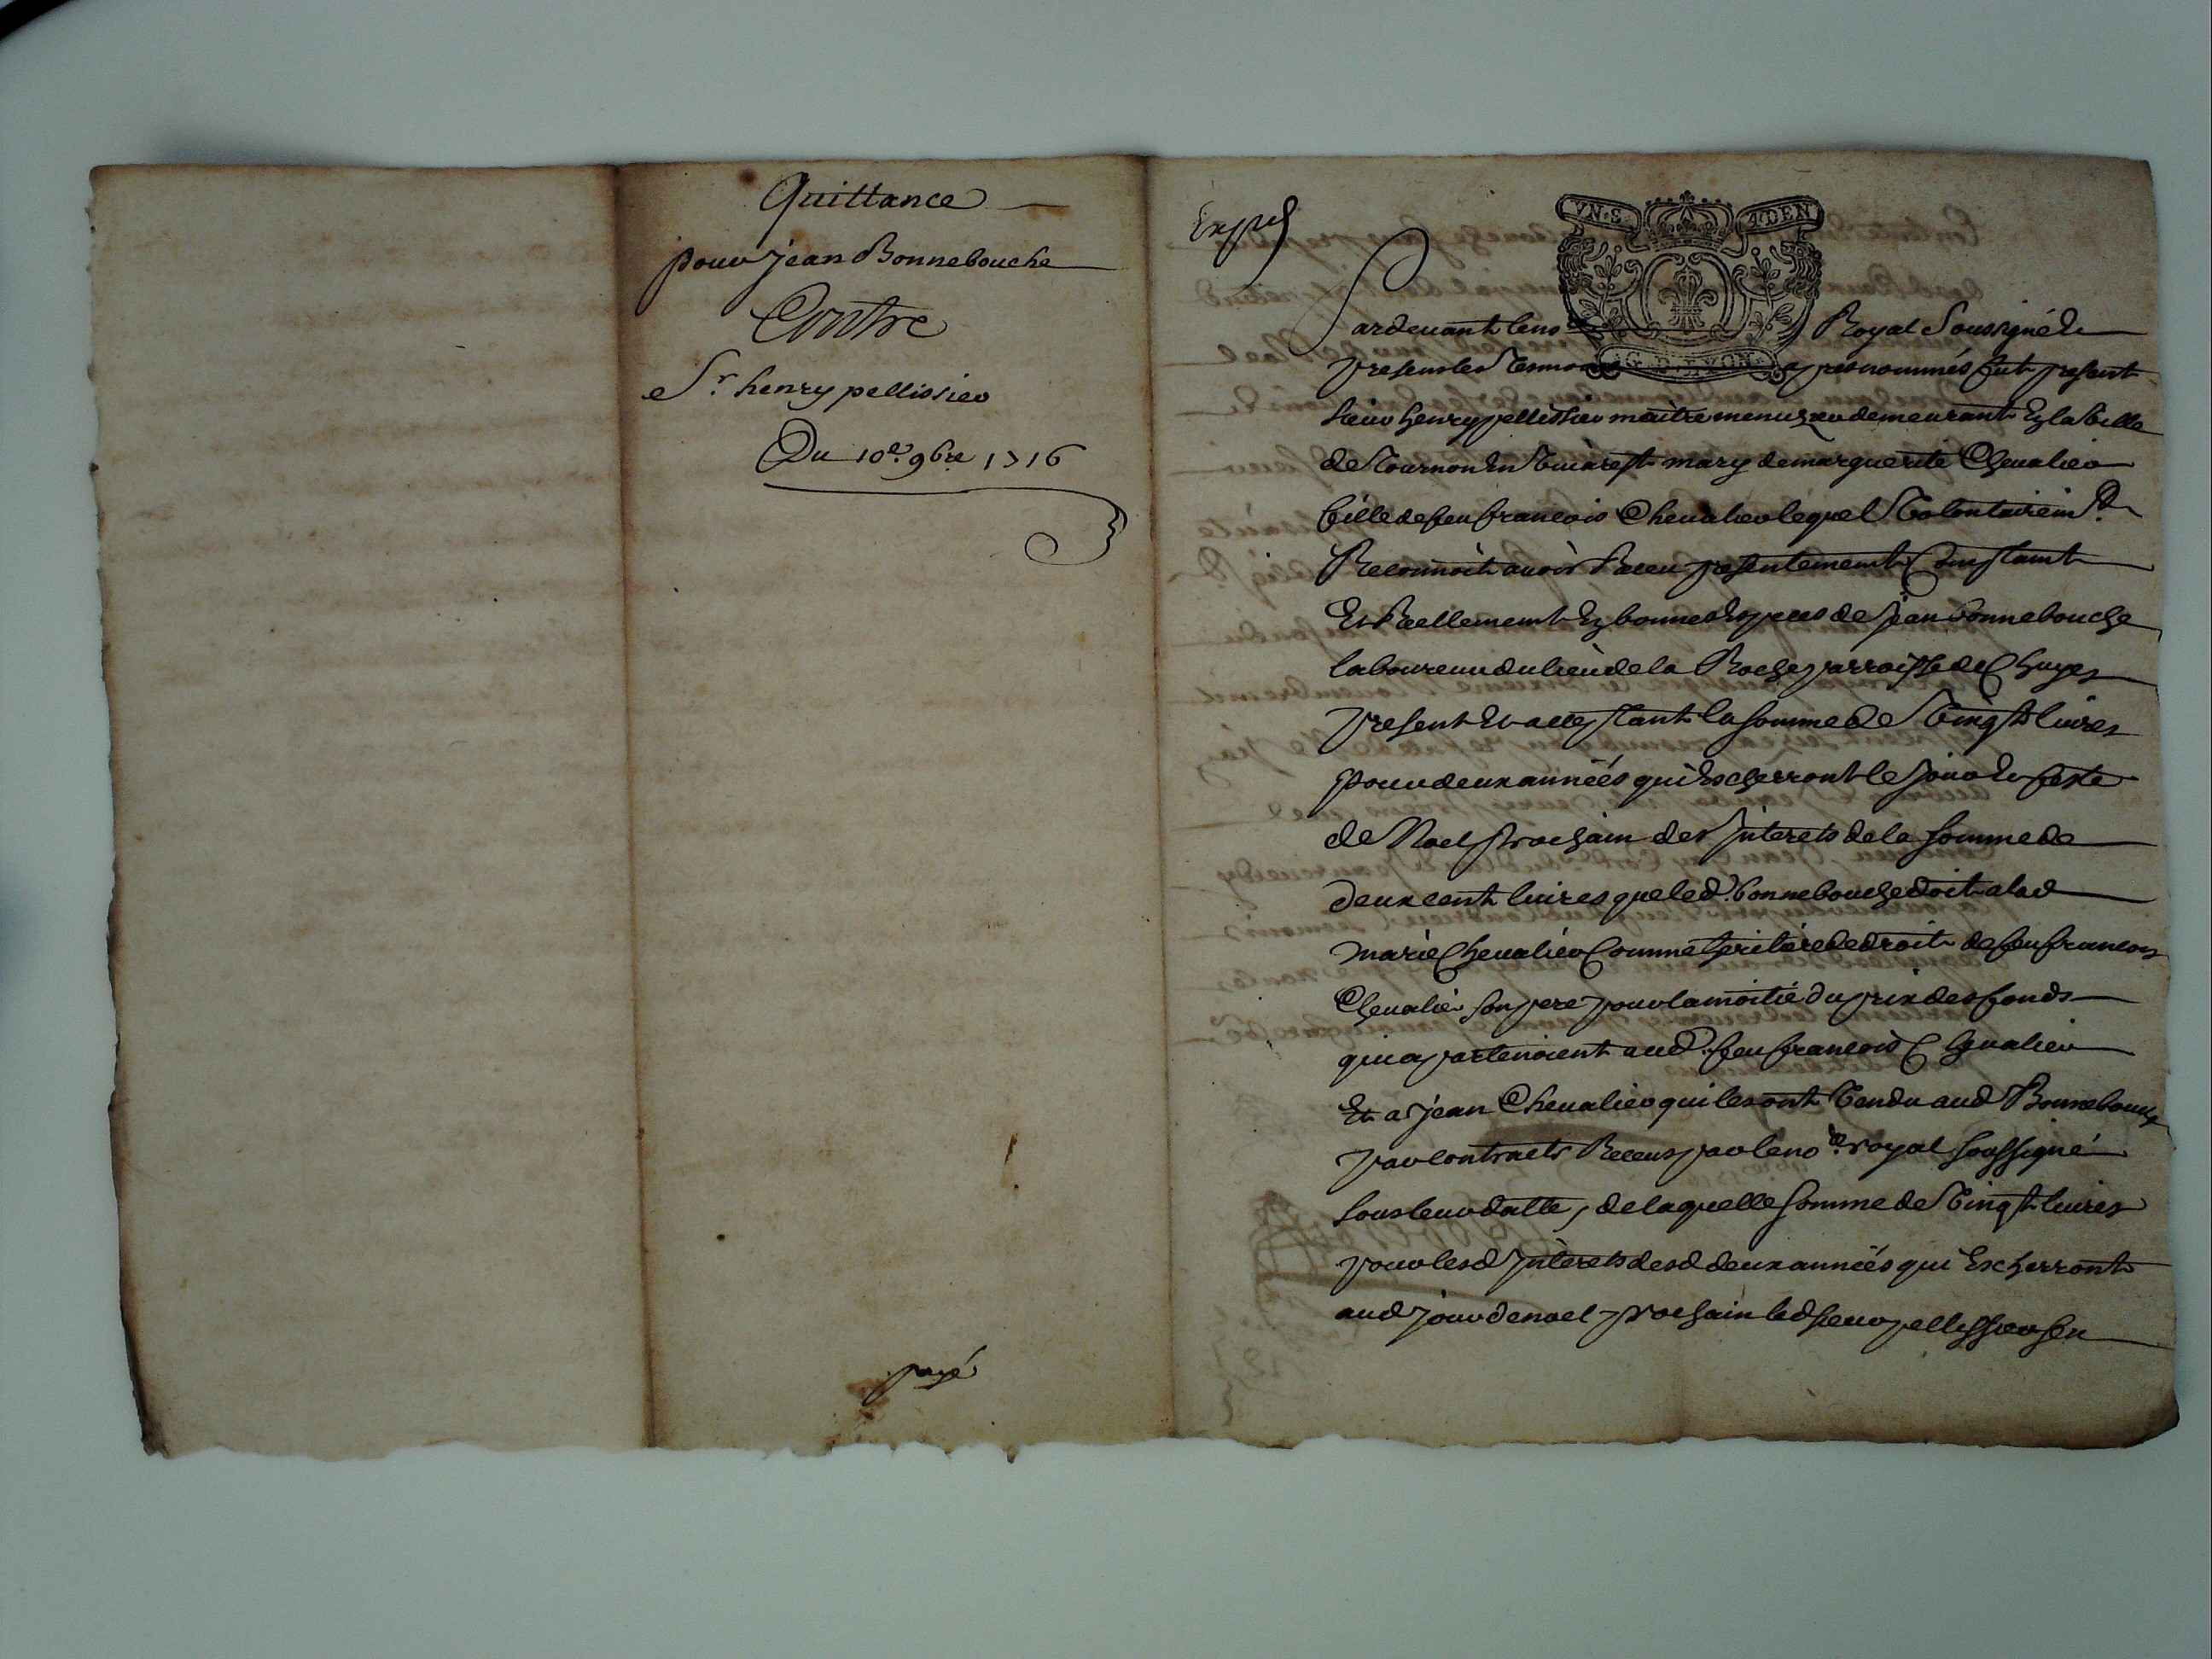 Quittance
pour Jean Bonnebouche
Contre
Sr. henry pellissier
Du 10e. 9bre 1716
payé
Exped
VN·S· ·4·DEN
G·D·LYON
Pardeuant le no.re Royal Soussigné &
presens les tesmoins apres nommés fut present
sieur henry pellissier maitre menuzier demeurant En la Ville
de Tournon En Viuarest mary de marguerite Cheualier
fille de feu francois Cheualier lequel Volontairemt.
Reconnoit auoir Receu presentement Comptant
Et Reellement En bonnes Especes de Jean Bonnebouche
laboureur du lieu de la Roche parroisse de Chuyes
present Et acceptant la somme de Vingt liures
pour deux années qui Escherront le Jour Et feste
de Noel prochain des Interets de la somme de
deux cent liures que led. bonnebouche doit a lad
marie Cheualier Comme heritiere de droit de feu francois
Cheualier son pere pour la moitié du prix des fonds
qui apartenoient aud. feu francois Cheualier
Et a Jean Cheualier qui les ont Vendu aud Bonnebouche
par contracts Receus par le no.re royal soussigné
sous leur datte, de laquelle somme de Vingt liures
pour lesd Interets desd deux années qui Escherront
aud Jour de noel prochain led sieur pellissier sen